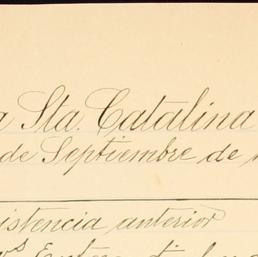 a Sta. Catalina
de Septiembre de
istencia anterior